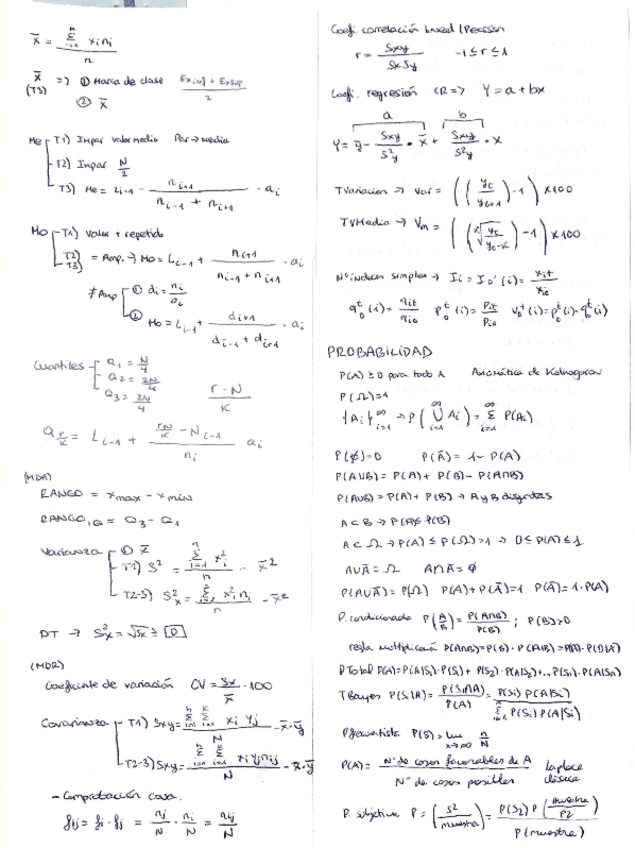 x̄ = Σ(i=1, n) xi ni / n
x̄ (T3) => ① Marca de clase (Exinf + Exsup) / 2
② x̄
Me T1) Impar valor medio Par → media
T2) Impar N/2
T3) Me = Li-1 - ni+1 / (ni-1 + ni+1) · ai
Mo T1) Valor + repetido
T2) T3) = Amp. → Mo = Li-1 + ni+1 / (ni-1 + ni+1) · ai
≠ Amp ① di = ni / ai
② Mo = Li-1 + di+1 / (di-1 + di+1) · ai
Cuantiles Q1 = N/4
Q2 = 2N/4
Q3 = 3N/4
r·N / K
Q r/K = Li-1 + (rN/K - Ni-1) / ni ai
(MDA)
RANGO = xmax - xmin
RANGO IQ = Q3 - Q1
Varianza ① x̄
T1) S² = Σ(i=1, n) xi² / n - x̄²
T2-3) S²x = Σ(i=1, n) xi² ni / n - x̄²
DT →
(MDR)
Coeficiente de variación CV = Sx / x̄ · 100
Covarianza T1) Sxy = Σ(i=1) Σ(i=1) xi yj / N - x̄·ȳ
T2-3) Sxy = Σ(i=1) Σ(i=1) xi yj nij / N - x̄·ȳ
- Comprobación cova.
fij = fi · fj = nj/N · ni/N = nij/N
Coefi. correlación lineal / Pearson
r = Sxy / Sx Sy -1 ≤ r ≤ 1
Coefi. regresión (R => Y = a + bx
a b
Y = ȳ - Sxy/S²y · x̄ + Sxy/S²y · x
TVariacion → Var = ((yt / yt-1) - 1) x100
TVMedia → Vm = ((ᴷ√(yt / yt-k)) - 1) x100
Nº indices simples → Ii = I0ᵗ(i) = xit / xi0
q0ᵗ(i) = qit / qi0 p0ᵗ(i) = pit / pi0 v0ᵗ(i) = p0ᵗ(i) · q0ᵗ(i)
PROBABILIDAD
P(A) ≥ 0 para todo A Axiomática de Kolmogorov
P(Ω) = 1
{Ai}(i=1, ∞) → P(∪(i=1, ∞) Ai) = Σ(i=1, ∞) P(Ai)
P(∅) = 0 P(Ā) = 1 - P(A)
P(AUB) = P(A) + P(B) - P(A∩B)
P(AUB) = P(A) + P(B) → A y B disjuntas
A ⊂ B → P(A) ≤ P(B)
A ⊂ Ω → P(A) ≤ P(Ω) = 1 → 0 ≤ P(A) ≤ 1
AUĀ = Ω A∩Ā = ∅
P(AUĀ) = P(Ω) P(A) + P(Ā) = 1 P(Ā) = 1 - P(A)
P. condicionada P(A/B) = P(A∩B) / P(B) ; P(B) > 0
regla multiplicación P(A∩B) = P(B) · P(A|B) = P(A) · P(B|A)
P Total P(A) = P(A|S1) · P(S1) + P(S2) · P(A|S2) + ... P(Sn) · P(A|Sn)
T Bayes P(Si|A) = P(Si∩A) / P(A) = P(Si) P(A|Si) / Σ(i=1) P(Si) P(A|Si)
P frecuentista P(S) = lim x→∞ n/N
P(A) = Nº de casos favorables de A / Nº de casos posibles Laplace clásica
P. subjetiva P = (S2 / muestra) = P(S2) P(muestra / P2) / P(muestra)